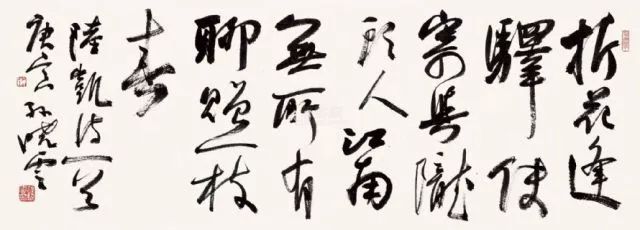 折花逢
驛使
寄與隴
頭人江南
無所有
聊贈一枝
春
陸凱詩一首
庚寅孫曉雲